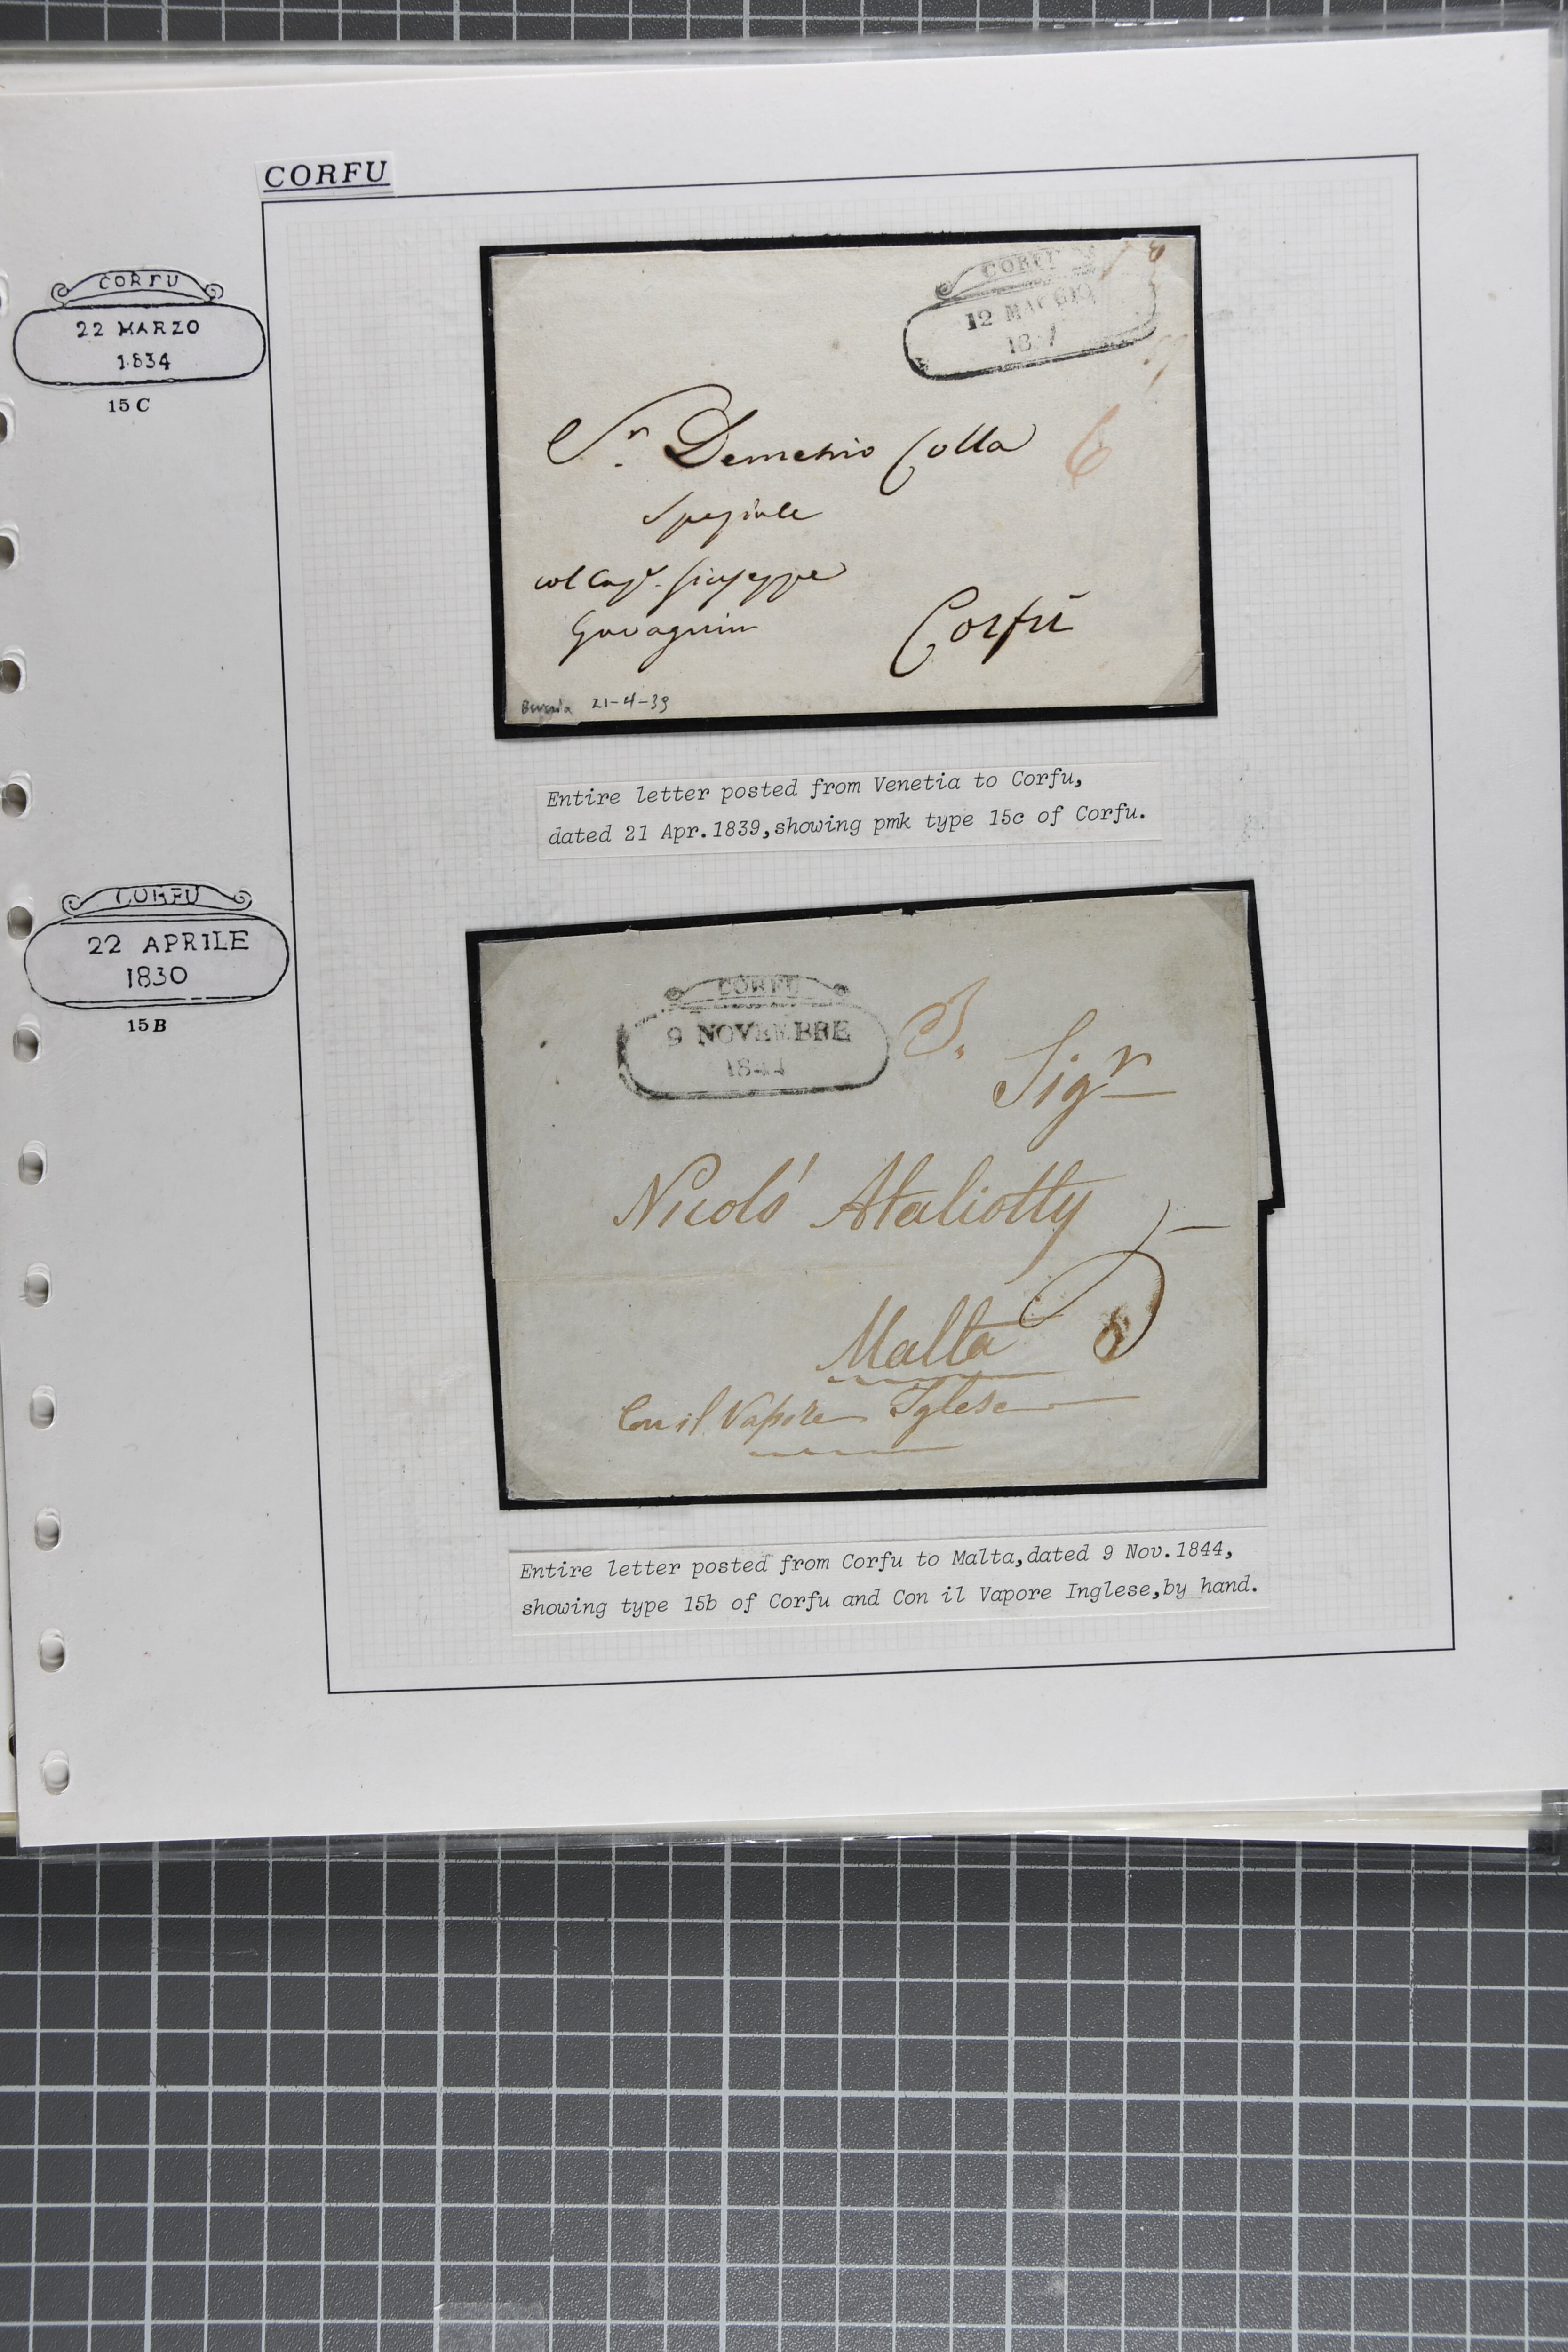 CORFU
CORFU
22 MARZO
1834
15 C
CORFU
12 MAGGIO
Sr. Demetrio Colla
6
Speziale
col Capn. Giuseppe
Corfù
21-4-39
Entire letter posted from Venetia to Corfu,
dated 21 Apr.1839,showing pmk type 15c of Corfu.
CORFU
22 APRILE
1830
15 B
CORFU
9 NOVEMBRE
1844
Sigr
Nicolò Ataliotty
Malta
Con il Vapore Iglese
Entire letter posted from Corfu to Malta,dated 9 Nov.1844,
showing type 15b of Corfu and Con il Vapore Inglese,by hand.